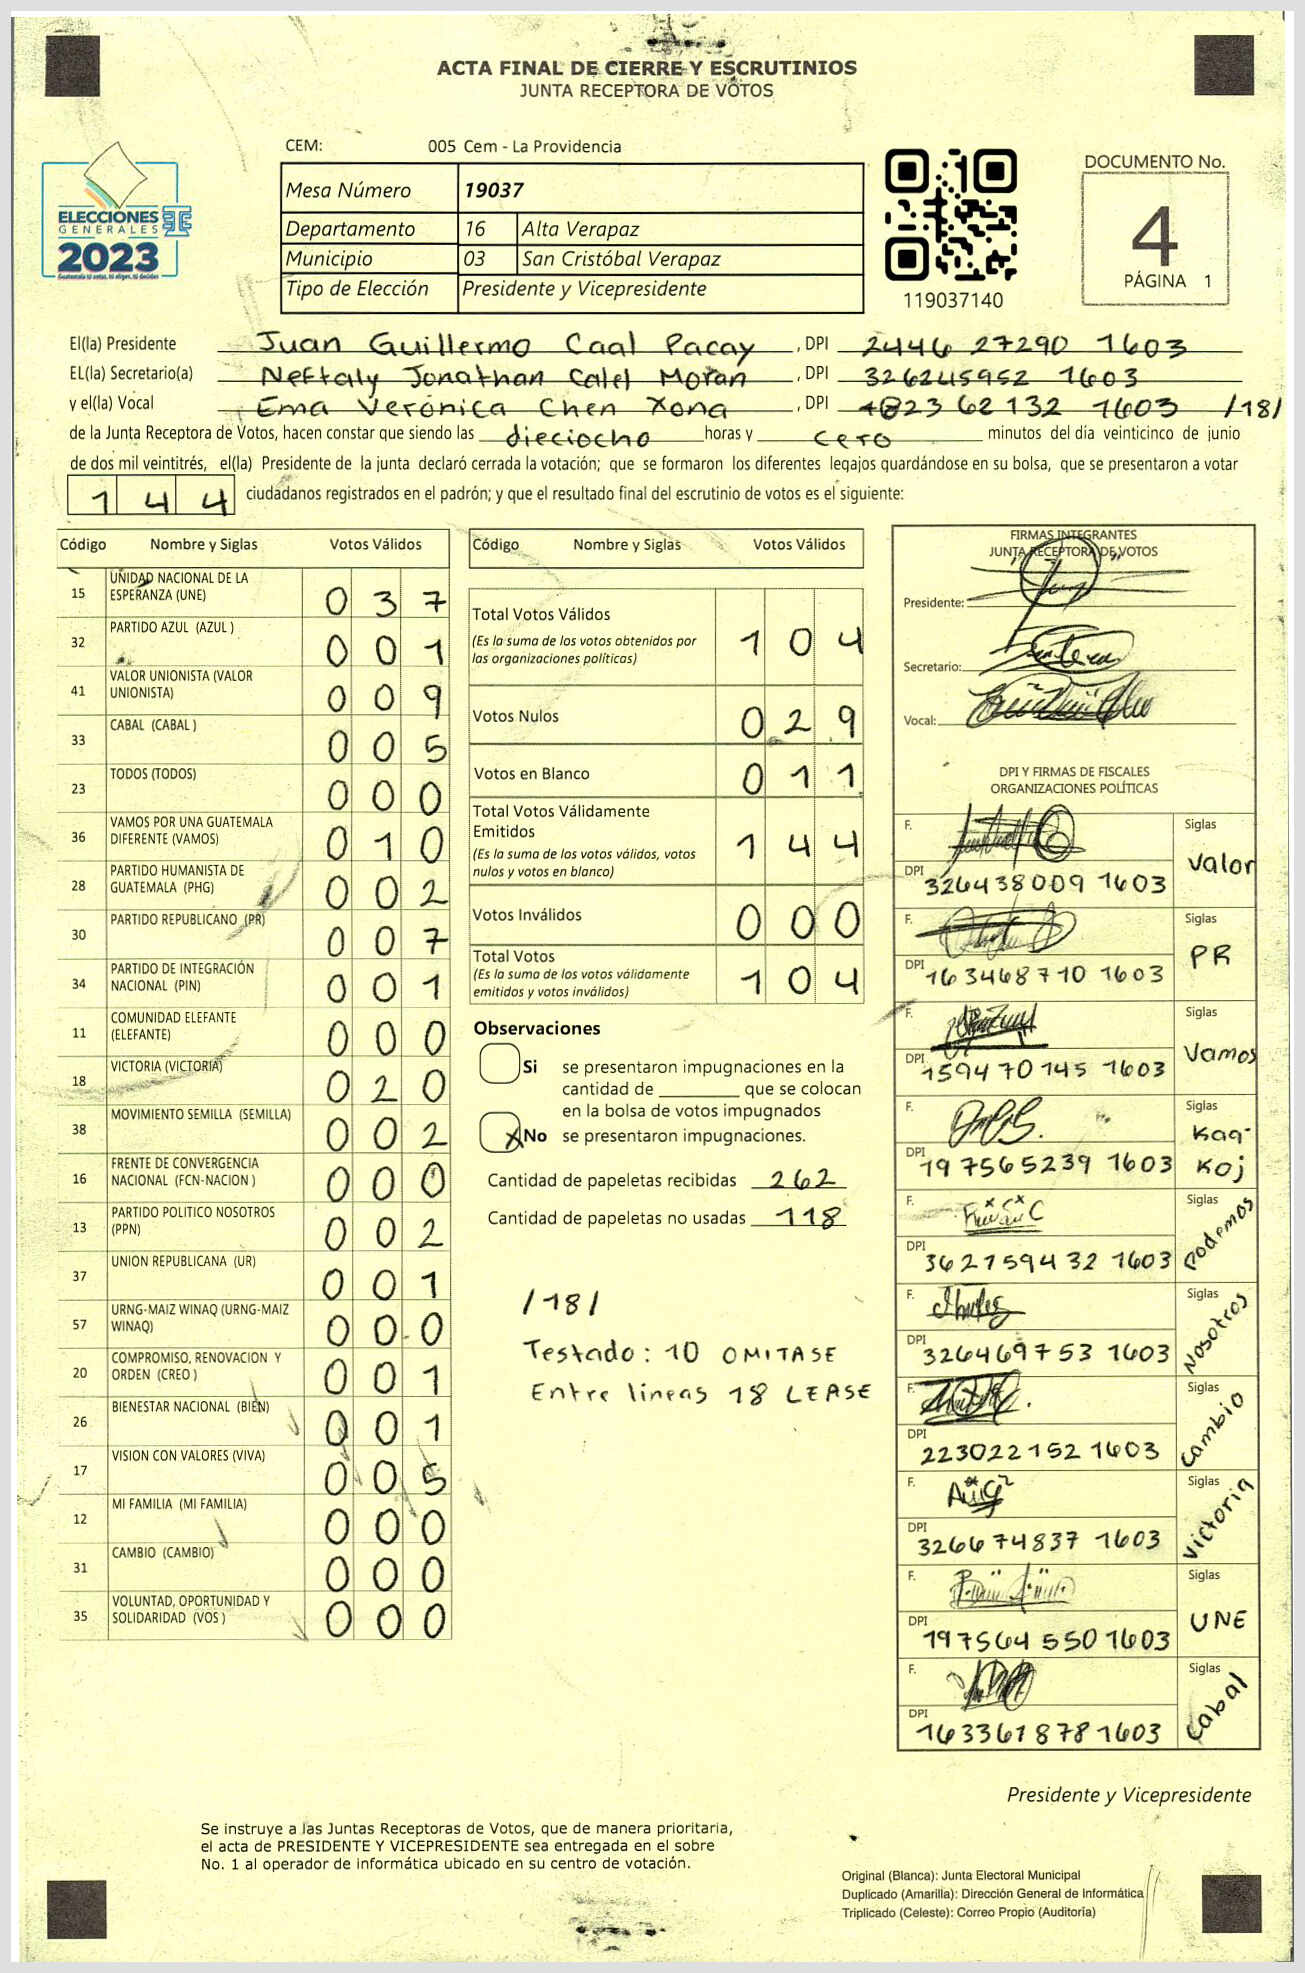 ACTA FINAL DE CIERRE Y ESCRUTINIOS
JUNTA RECEPTORA DE VOTOS
CEM: 005 Cem - La Providencia
ELECCIONES
GENERALES
2023
Mesa Número 19037
Departamento 16 Alta Verapaz
Municipio 03 San Cristóbal Verapaz
Tipo de Elección Presidente y Vicepresidente
119037140
DOCUMENTO No.
4
PÁGINA 1
El(la) Presidente Juan Guillermo Caal Pacay, DPI 2446 27290 1603
EL(la) Secretario(a) Neftaly Jonathan Calel Moran, DPI 326245952 1603
y el(la) Vocal Ema Verónica Chen Xona, DPI 23 62 132 1603 /18/
de la Junta Receptora de Votos, hacen constar que siendo las dieciocho horas y cero minutos del día veinticinco de junio
de dos mil veintitrés, el(la) Presidente de la junta declaró cerrada la votación; que se formaron los diferentes legajos quardándose en su bolsa, que se presentaron a votar
1 4 4 ciudadanos registrados en el padrón; y que el resultado final del escrutinio de votos es el siguiente:
Código Nombre y Siglas Votos Válidos
15 UNIDAD NACIONAL DE LA ESPERANZA (UNE) 0 3 7
32 PARTIDO AZUL (AZUL ) 0 0 1
41 VALOR UNIONISTA (VALOR UNIONISTA) 0 0 9
33 CABAL (CABAL ) 0 0 5
23 TODOS (TODOS) 0 0 0
36 VAMOS POR UNA GUATEMALA DIFERENTE (VAMOS) 0 1 0
28 PARTIDO HUMANISTA DE GUATEMALA (PHG) 0 0 2
30 PARTIDO REPUBLICANO (PR) 0 0 7
34 PARTIDO DE INTEGRACIÓN NACIONAL (PIN) 0 0 1
11 COMUNIDAD ELEFANTE (ELEFANTE) 0 0 0
18 VICTORIA (VICTORIA) 0 2 0
38 MOVIMIENTO SEMILLA (SEMILLA) 0 0 2
16 FRENTE DE CONVERGENCIA NACIONAL (FCN-NACION ) 0 0 0
13 PARTIDO POLITICO NOSOTROS (PPN) 0 0 2
37 UNION REPUBLICANA (UR) 0 0 1
57 URNG-MAIZ WINAQ (URNG-MAIZ WINAQ) 0 0 0
20 COMPROMISO, RENOVACION Y ORDEN (CREO ) 0 0 1
26 BIENESTAR NACIONAL (BIEN) 0 0 1
17 VISION CON VALORES (VIVA) 0 0 5
12 MI FAMILIA (MI FAMILIA) 0 0 0
31 CAMBIO (CAMBIO) 0 0 0
35 VOLUNTAD, OPORTUNIDAD Y SOLIDARIDAD (VOS ) 0 0 0
Código Nombre y Siglas Votos Válidos
Total Votos Válidos 1 0 4
(Es la suma de los votos obtenidos por
las organizaciones políticas)
Votos Nulos 0 2 9
Votos en Blanco 0 1 1
Total Votos Válidamente
Emitidos 1 4 4
(Es la suma de los votos válidos, votos
nulos y votos en blanco)
Votos Inválidos 0 0 0
Total Votos 1 0 4
(Es la suma de los votos válidamente
emitidos y votos inválidos)
Observaciones
Si se presentaron impugnaciones en la
cantidad de ________ que se colocan
en la bolsa de votos impugnados
X No se presentaron impugnaciones.
Cantidad de papeletas recibidas 262
Cantidad de papeletas no usadas 118
/18/
Testado: 10 OMITASE
Entre lineas 18 LEASE
FIRMAS INTEGRANTES
JUNTA RECEPTORA DE VOTOS
Presidente:
Secretario:
Vocal:
DPI Y FIRMAS DE FISCALES
ORGANIZACIONES POLÍTICAS
F. Siglas Valor
DPI 326438009 1603
F. Siglas PR
DPI 163468710 1603
F. Siglas Vamos
DPI 159470145 1603
F. Siglas Kaq-
Koj
DPI 197565239 1603
F. Siglas Podemos
DPI 362759432 1603
F. Siglas Nosotros
DPI 326469753 1603
F. Siglas Cambio
DPI 223022152 1603
F. Siglas Victoria
DPI 326674837 1603
F. Siglas UNE
DPI 197564550 1603
F. Siglas Cabal
DPI 163361878 1603
Presidente y Vicepresidente
Se instruye a las Juntas Receptoras de Votos, que de manera prioritaria,
el acta de PRESIDENTE Y VICEPRESIDENTE sea entregada en el sobre
No. 1 al operador de informática ubicado en su centro de votación.
Original (Blanca): Junta Electoral Municipal
Duplicado (Amarilla): Dirección General de Informática
Triplicado (Celeste): Correo Propio (Auditoría)